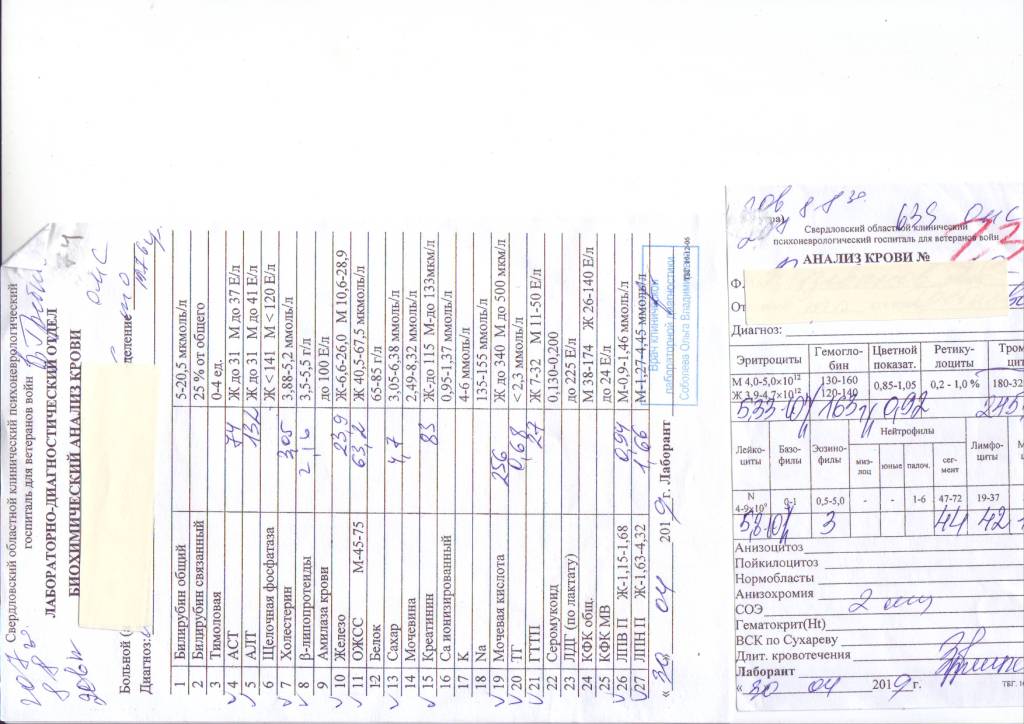 Свердловский областной клинический психоневрологический
госпиталь для ветеранов войн
ЛАБОРАТОРНО-ДИАГНОСТИЧЕСКИЙ ОТДЕЛ
БИОХИМИЧЕСКИЙ АНАЛИЗ КРОВИ
ОМС
88
Больной
деление
Диагноз:
1 Билирубин общий 5-20,5 мкмоль/л
2 Билирубин связанный 25 % от общего
3 Тимоловая 0-4 ед.
4 АСТ 74 Ж до 31 М до 37 Е/л
5 АЛТ 132 Ж до 31 М до 41 Е/л
6 Щелочная фосфатаза Ж < 141 М < 120 Е/л
7 Холестерин 3,05 3,88-5,2 ммоль/л
8 β-липопротеиды 2,16 3,5-5,5 г/л
9 Амилаза крови до 100 Е/л
10 Железо 23,9 Ж-6,6-26,0 М 10,6-28,9
11 ОЖСС М-45-75 63,2 Ж 40,5-67,5 мкмоль/л
12 Белок 65-85 г/л
13 Сахар 4,7 3,05-6,38 ммоль/л
14 Мочевина 2,49-8,32 ммоль/л
15 Креатинин 85 Ж-до 115 М-до 133мкм/л
16 Са ионизированный 0,95-1,37 ммоль/л
17 К 4-6 ммоль/л
18 Na 135-155 ммоль/л
19 Мочевая кислота 256 Ж до 340 М до 500 мкм/л
20 ТГ 0,68 < 2,3 ммоль/л
21 ГГТП 27 Ж 7-32 М 11-50 Е/л
22 Серомукоид 0,130-0,200
23 ЛДГ (по лактату) до 225 Е/л
24 КФК общ. М 38-174 Ж 26-140 Е/л
25 КФК МВ до 24 Е/л
26 ЛПВ П Ж-1,15-1,68 0,94 М-0,9-1,46 ммоль/л
27 ЛПН П Ж-1,63-4,32 1,66 М-1,27-4,45 ммоль/л
« 30 » 04 2019 г. Лаборант
Врач клинической
лабораторной диагностики
Соболева Ольга Владимировна
88
639 ОМС
Свердловский областной клинический
психоневрологический госпиталь для ветеранов войн
АНАЛИЗ КРОВИ №
Ф.
От
Диагноз:
Эритроциты Гемогло-бин Цветной показат. Ретику-лоциты Тром
М 4,0-5,0×10¹² Ж 3,9-4,7×10¹² 130-160 120-140 0,85-1,05 0,2 - 1,0 % 180-32
5,33 163 0,92 245
Лейко-циты Базо-филы Эозино-филы Нейтрофилы Лимфо-циты М
миэ-лоц юные палоч. сег-мент
N 4-9×10⁹ 0-1 0,5-5,0 - - 1-6 47-72 19-37
5,8 3 44 42
Анизоцитоз
Пойкилоцитоз
Нормобласты
Анизохромия
СОЭ 2
Гематокрит(Ht)
ВСК по Сухареву
Длит. кровотечения
Лаборант
« 30 04 2019 г.